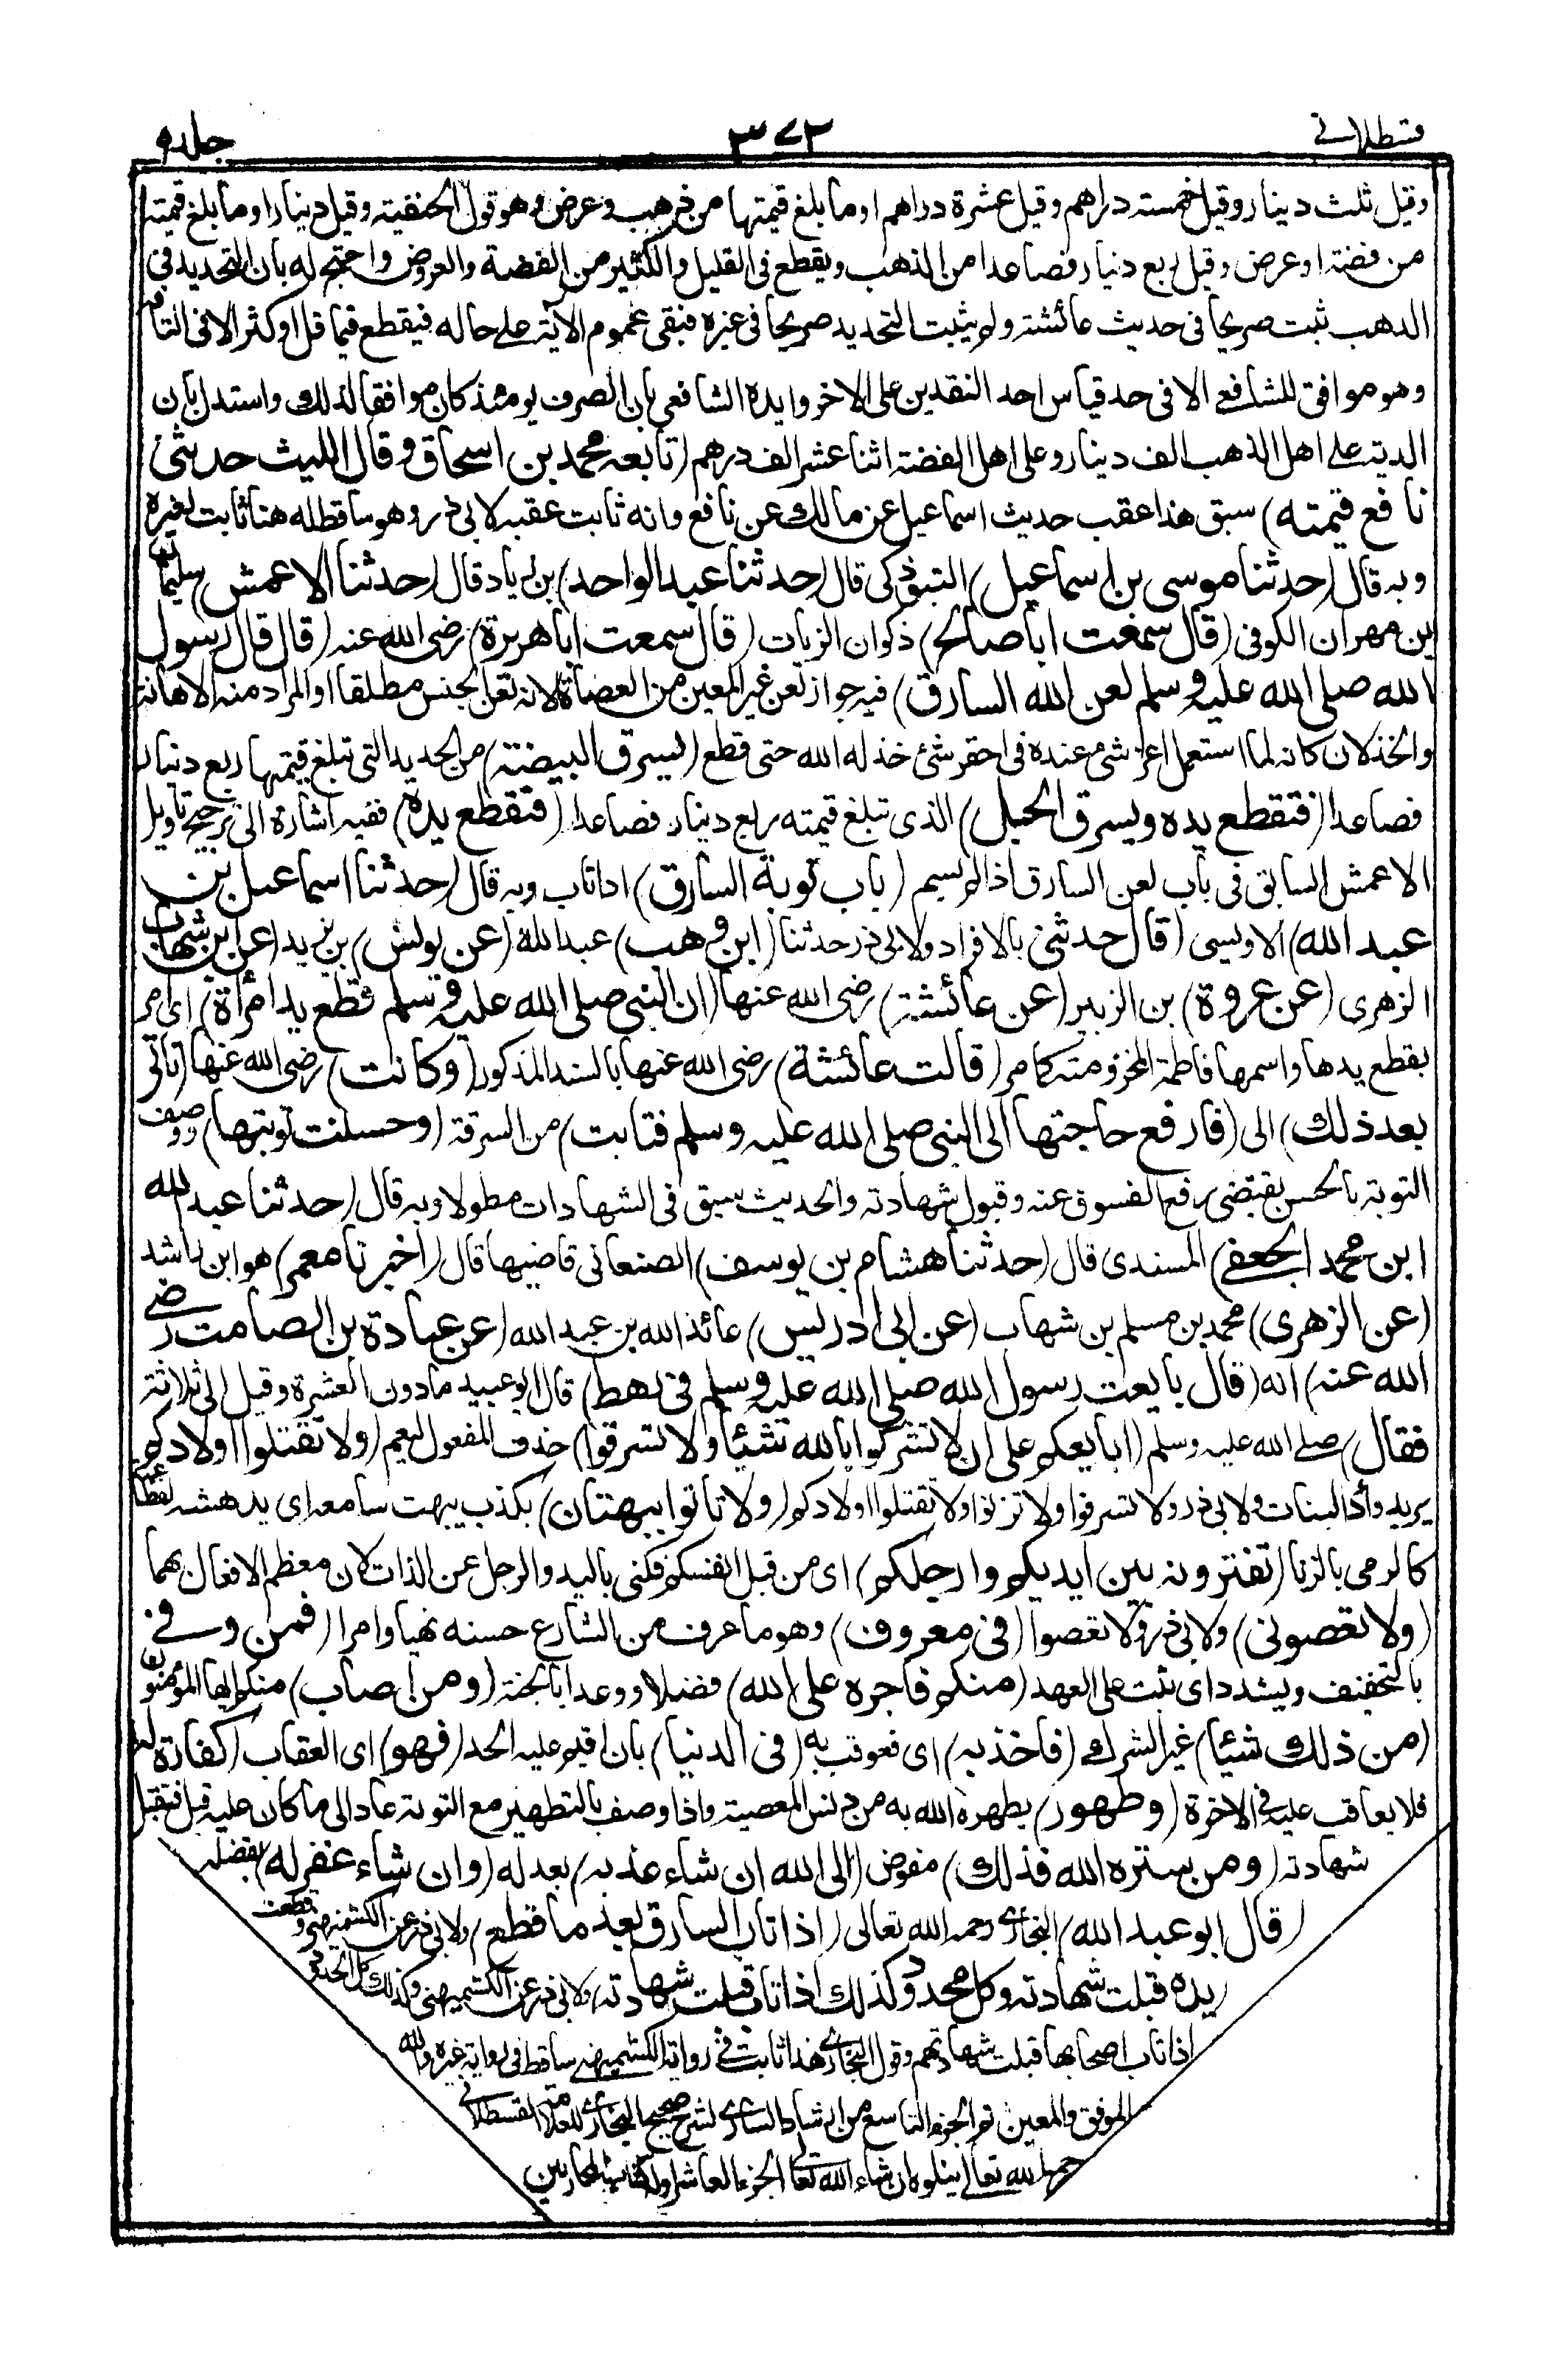 قسطلانی
۳۷۲
جلد ۹
وقيل ثلث دينار وقيل خمسته دراهم وقيل عشرة دراهم او ما بلغ قيمتها من ذهب وعرض وهو قول الحنفيته وقيل دينار او ما بلغ قيمته
من فضته او عرض وقيل ربع دينار فصاعدا من الذهب ويقطع فى القليل والكثير من الفضة والعروض واحتج له بان التحديد فى
الذهب ثبت صريحا فى حديث عائشته ولم يثبت التحديد صريحا فى غيره فبقى عموم الآية على حاله فيقطع فيما قل او كثر الا فى التافه
وهو موافق للشافعے الا فى حد قياس احد النقدين على الاخر وايده الشافعى بان الصرف يومئذ كان موافقا لذلك واستدل بان
الديته على اهل الذهب الف دينار وعلى اهل الفضته اثنا عشر الف درهم (تابعه محمد بن اسحاق وقال الليث حدثنى
نافع قيمته) سبق هذا عقب حديث اسماعيل عن مالك عن نافع وانه ثابت عقبه لابى ذر وهو ساقط له هنا ثابت لغيره
وبه قال (حدثنا موسى بن اسماعيل) التبوذكى قال (حدثنا عبد الواحد) بن زياد قال (حدثنا الاعمش) سليمان
بن مهران الكوفى (قال سمعت ابا صالح) ذكوان الزيات (قال سمعت ابا هريرة) رضى الله عنه (قال قال رسول
الله صلى الله عليه وسلم لعن الله السارق) فيه جواز لعن غير المعين من العصاة لانه لعن الجنس مطلقا او المراد منه الاهانة
والخذلان كانه لما استعمل اعز شئ عنده فى احقر شئ خذله الله حتى قطع (يسرق البيضته) من الحديد التى تبلغ قيمتها ربع دينار
فصاعدا (فتقطع يده ويسرق الحبل) الذى تبلغ قيمته ربع دينار فصاعدا (فتقطع يده) ففيه اشارة الى ترجيح تاويل
الاعمش السابق فى باب لعن السارق اذا لم يسم (باب توبة السارق) اذا تاب وبه قال (حدثنا اسماعيل بن
عبد الله) الاويسى (قال حدثنى) بالافراد ولابى ذر حدثنا (ابن وهب) عبد الله (عن يونس) بن يزيد (عن ابن شهاب)
الزهرى (عن عروة) بن الزبير (عن عائشته) رضى الله عنها (ان النبى صلى الله عليه وسلم قطع يد امرأة) اى امر
بقطع يدها واسمها فاطمة المخزوميته كما مر (قالت عائشة) رضى الله عنها بالسند المذكور (وكانت) رضى الله عنها (تاتى
بعد ذلك) الى (فارفع حاجتها الى النبى صلى الله عليه وسلم فتابت) من السرقة (وحسنت توبتها) ووصف
التوبته بالحسن يقتضى رفع الفسوق عنه وقبول شهادته والحديث سبق فى الشهادات مطولا وبه قال (حدثنا عبد الله
ابن محمد الجعفے) المسندى قال (حدثنا هشام بن يوسف) الصنعانى قاضيها قال (اخبرنا معمر) هو ابن راشد
(عن الزهرى) محمد بن مسلم بن شهاب (عن ابى ادريس) عائذ الله بن عبد الله (عن عبادة بن الصامت رضے
الله عنه) انه (قال بايعت رسول الله صلى الله عليه وسلم فى رهط) قال ابو عبيد ما دون العشرة وقيل الى ثلاثة
فقال) صلے الله عليه وسلم (ابايعكم على ان لا تشركوا بالله شيئا ولا تسرقوا) حذف المفعول ليعم (ولا تقتلوا اولادكم)
يريد وأد البنات ولابى ذر ولا تسرقوا ولا تزنوا ولا تقتلوا اولادكم (ولا تاتوا ببهتان) بكذب يبهت سامعه اى يدهشه لفظاعته
كالرمى بالزنا (تفترونه بين ايديكم وارجلكم) اى من قبل انفسكم فكنى باليد والرجل عن الذات لان معظم الافعال بهما
(ولا تعصونى) ولابى ذر ولا تعصوا (فى معروف) وهو ما عرف من الشارع حسنه نهيا وامرا (فمن وفے
بالتخفيف ويشدد اى ثبت على العهد (منكم فاجره على الله) فضلا ووعدا بالجنة (ومن اصاب) منكم ايها المؤمنون
(من ذلك شيئا) غير الشرك (فاخذ به) اى فعوقب به (فى الدنيا) بان اقيم عليه الحد (فهو) اى العقاب (كفارة له)
فلا يعاقب عليه فى الاخرة (وطهور) يطهره الله به من دنس المعصية واذا وصف بالتطهير مع التوبته عاد الى ما كان عليه قبل فتقبل
شهادته (ومن ستره الله فذلك) مفوض (الى الله ان شاء عذبه) بعدله (وان شاء غفر له) بفضله
(قال ابو عبد الله) البخارے رحمه الله تعالى (اذا تاب السارق بعد ما قطع) ولابى ذر عن الكشميهنى وقطعت
(يده قبلت شهادته وكل محدود كذلك اذا تاب قبلت شهادته) ولابى ذر عن الكشميهنى وكذلك كل الحدود
اذا تاب اصحابها قبلت شهادتهم وقول البخارے هذا ثابت فى رواية الكشميهنے ساقط فى رواية غيره والله
الموفق والمعين تم الجزء التاسع من ارشاد السارے لشرح صحيح البخارے للعلامة القسطلانے
رحمه الله تعالى يتلوه ان شاء الله تعالى الجزء العاشر اوله كتاب المحاربين